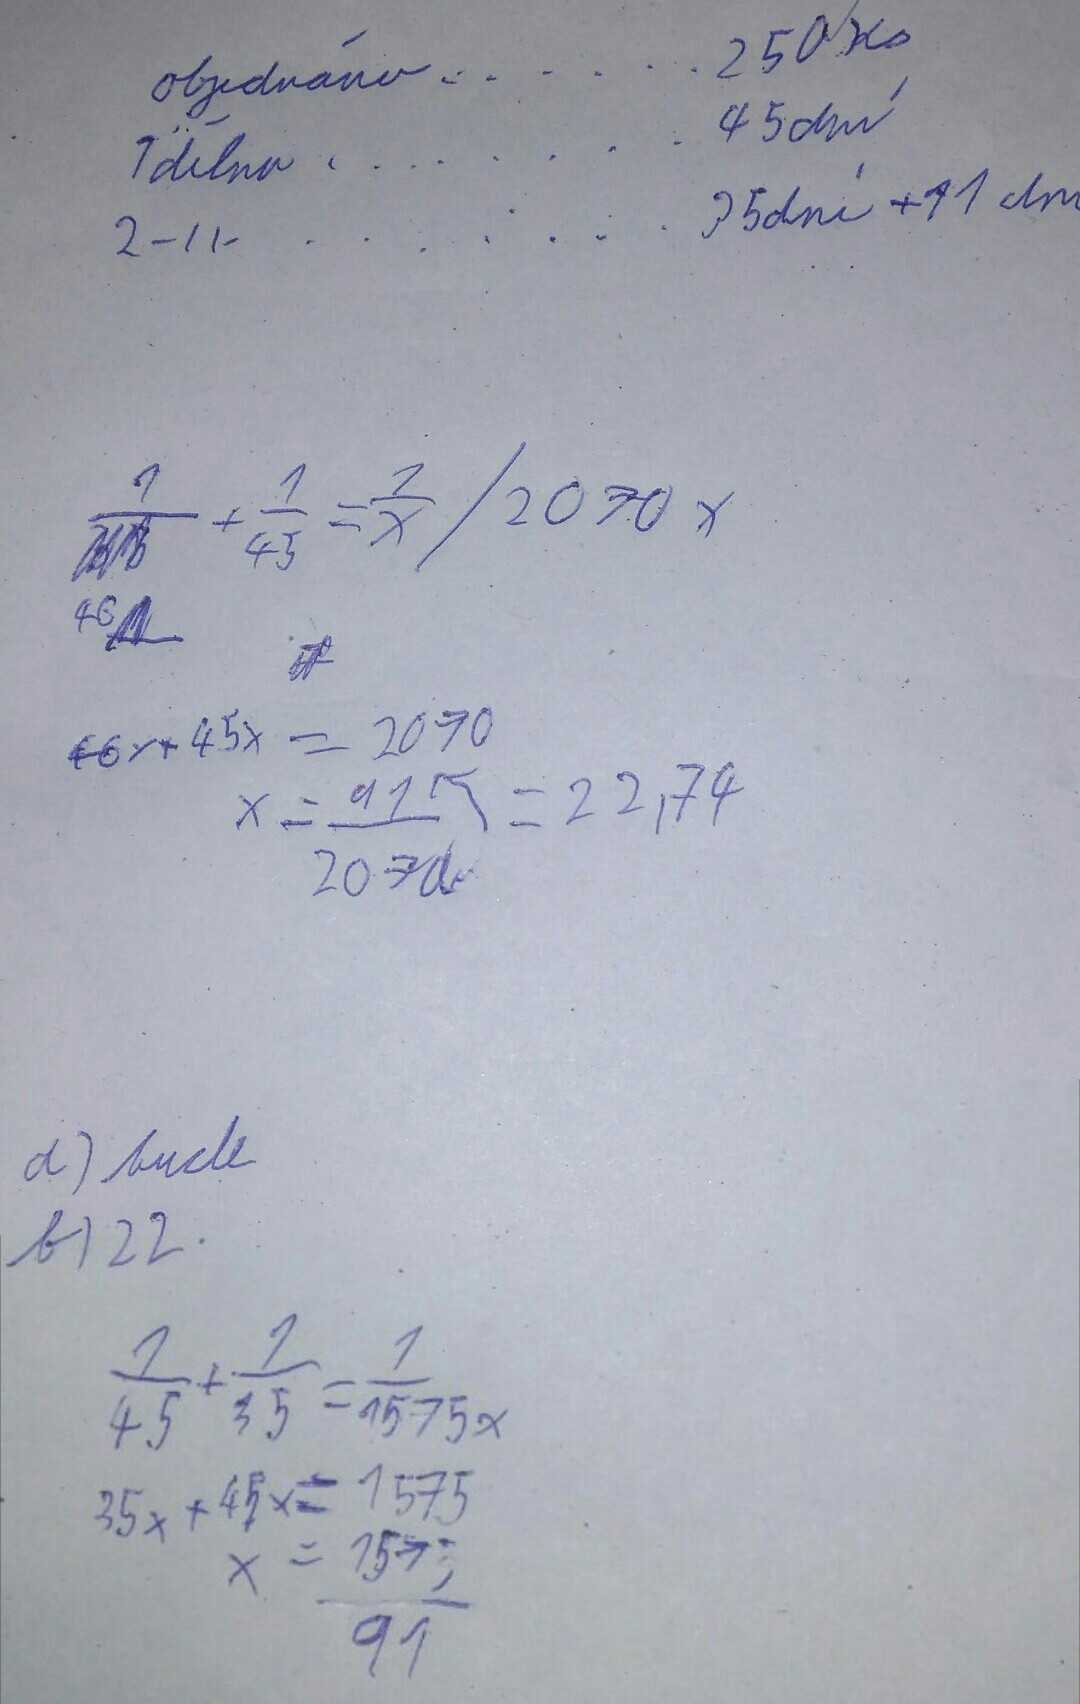 objednáno ........ 250 ks
1 dílna ......... 45 dní
2 -11- ........ 35 dní + 11 dní
1/46 + 1/45 = 1/x / 2070 x
46x + 45x = 2070
x = 91/2070 = 22,74
a) bude
b) 22.
1/45 + 1/35 = 1/1575x
35x + 45x = 1575
x = 1575/91